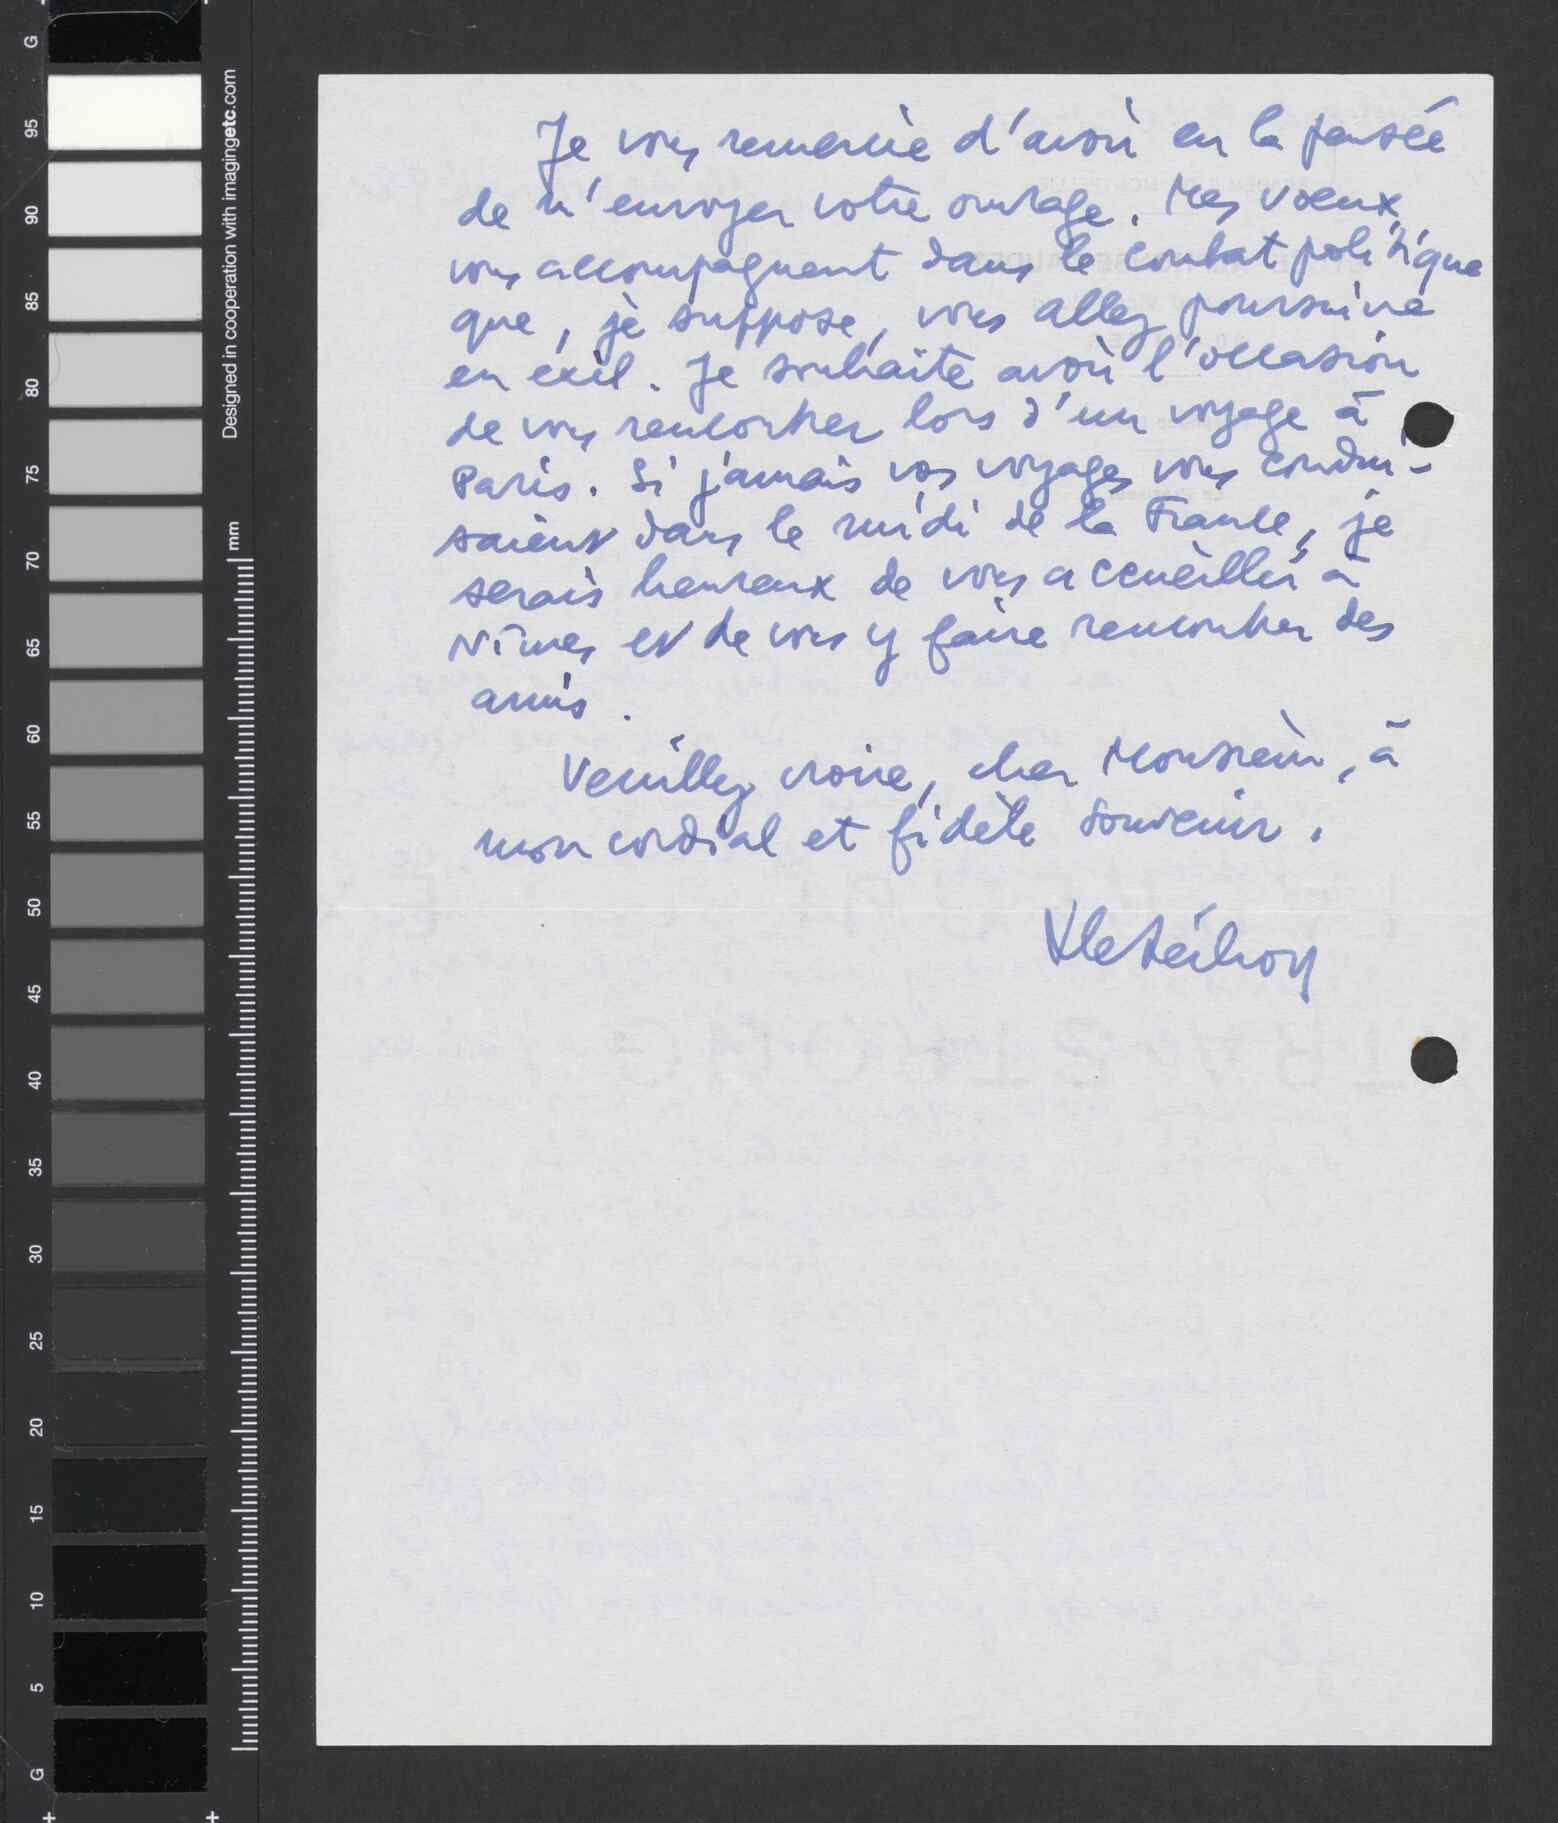 Je vous remercie d'avoir eu la pensée
de m'envoyer votre ouvrage. Mes voeux
vous accompagnent dans le combat politique
que, je suppose, vous allez poursuivre
en exil. Je souhaite avoir l'occasion
de vous rencontrer lors d'un voyage à
Paris. Si jamais vos voyages vous condui-
saient dans le midi de la France, je
serais heureux de vous accueillir à
Nîmes et de vous y faire rencontrer des
amis.
Veuillez croire, cher Monsieur, à
mon cordial et fidèle souvenir.
Designed in cooperation with imagingetc.com
mm
G
95
90
85
80
75
70
65
60
55
50
45
40
35
30
25
20
15
10
5
G